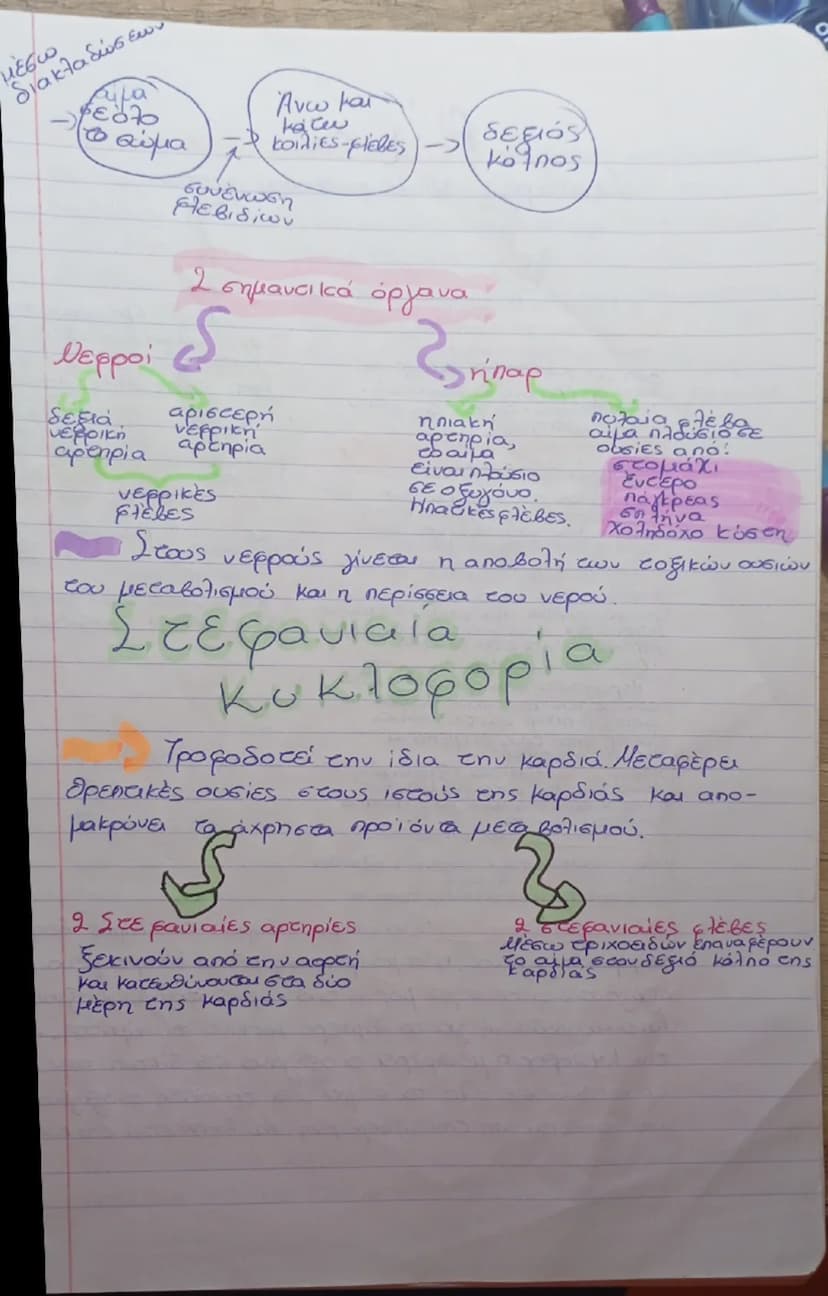 μέσω
διακλαδώσεων
αίμα
σε όλο
το σώμα
Άνω και
κάτω
κοιλιές-φλέβες
δεξιός
κόλπος
συνένωση
φλεβιδίων
2 σημαντικά όργανα
Νεφροί
ήπαρ
δεξιά
νεφρική
αρτηρία
αριστερή
νεφρική
αρτηρία
νεφρικές
φλέβες
ηπιακή
αρτηρία,
το αίμα
είναι πλόσιο
σε οξυγόνο.
Ηπατικές φλέβες.
πυλαία φλέβα
αίμα πλούσιο σε
ουσίες από:
στομάχι
έντερο
πάγκρεας
σπλήνα
χοληδόχο κύστη
Στους νεφρούς γίνεται η αποβολή των τοξικών ουσιών
του μεταβολισμού και η περίσσεια του νερού.
Στεφανιαία
κυκλοφορία
Τροφοδοτεί την ίδια την καρδιά. Μεταφέρει
θρεπτικές ουσίες στους ιστούς της καρδιάς και απο-
μακρύνει τα άχρηστα προϊόντα μεταβολισμού.
2 Στεφανιαίες αρτηρίες
ξεκινούν από την αορτή
και κατευθύνονται στα δύο
μέρη της καρδιάς
2 στεφανιαίες φλέβες
Μέσω τριχοειδών επαναφέρουν
το αίμα στον δεξιό κόλπο της
καρδιάς